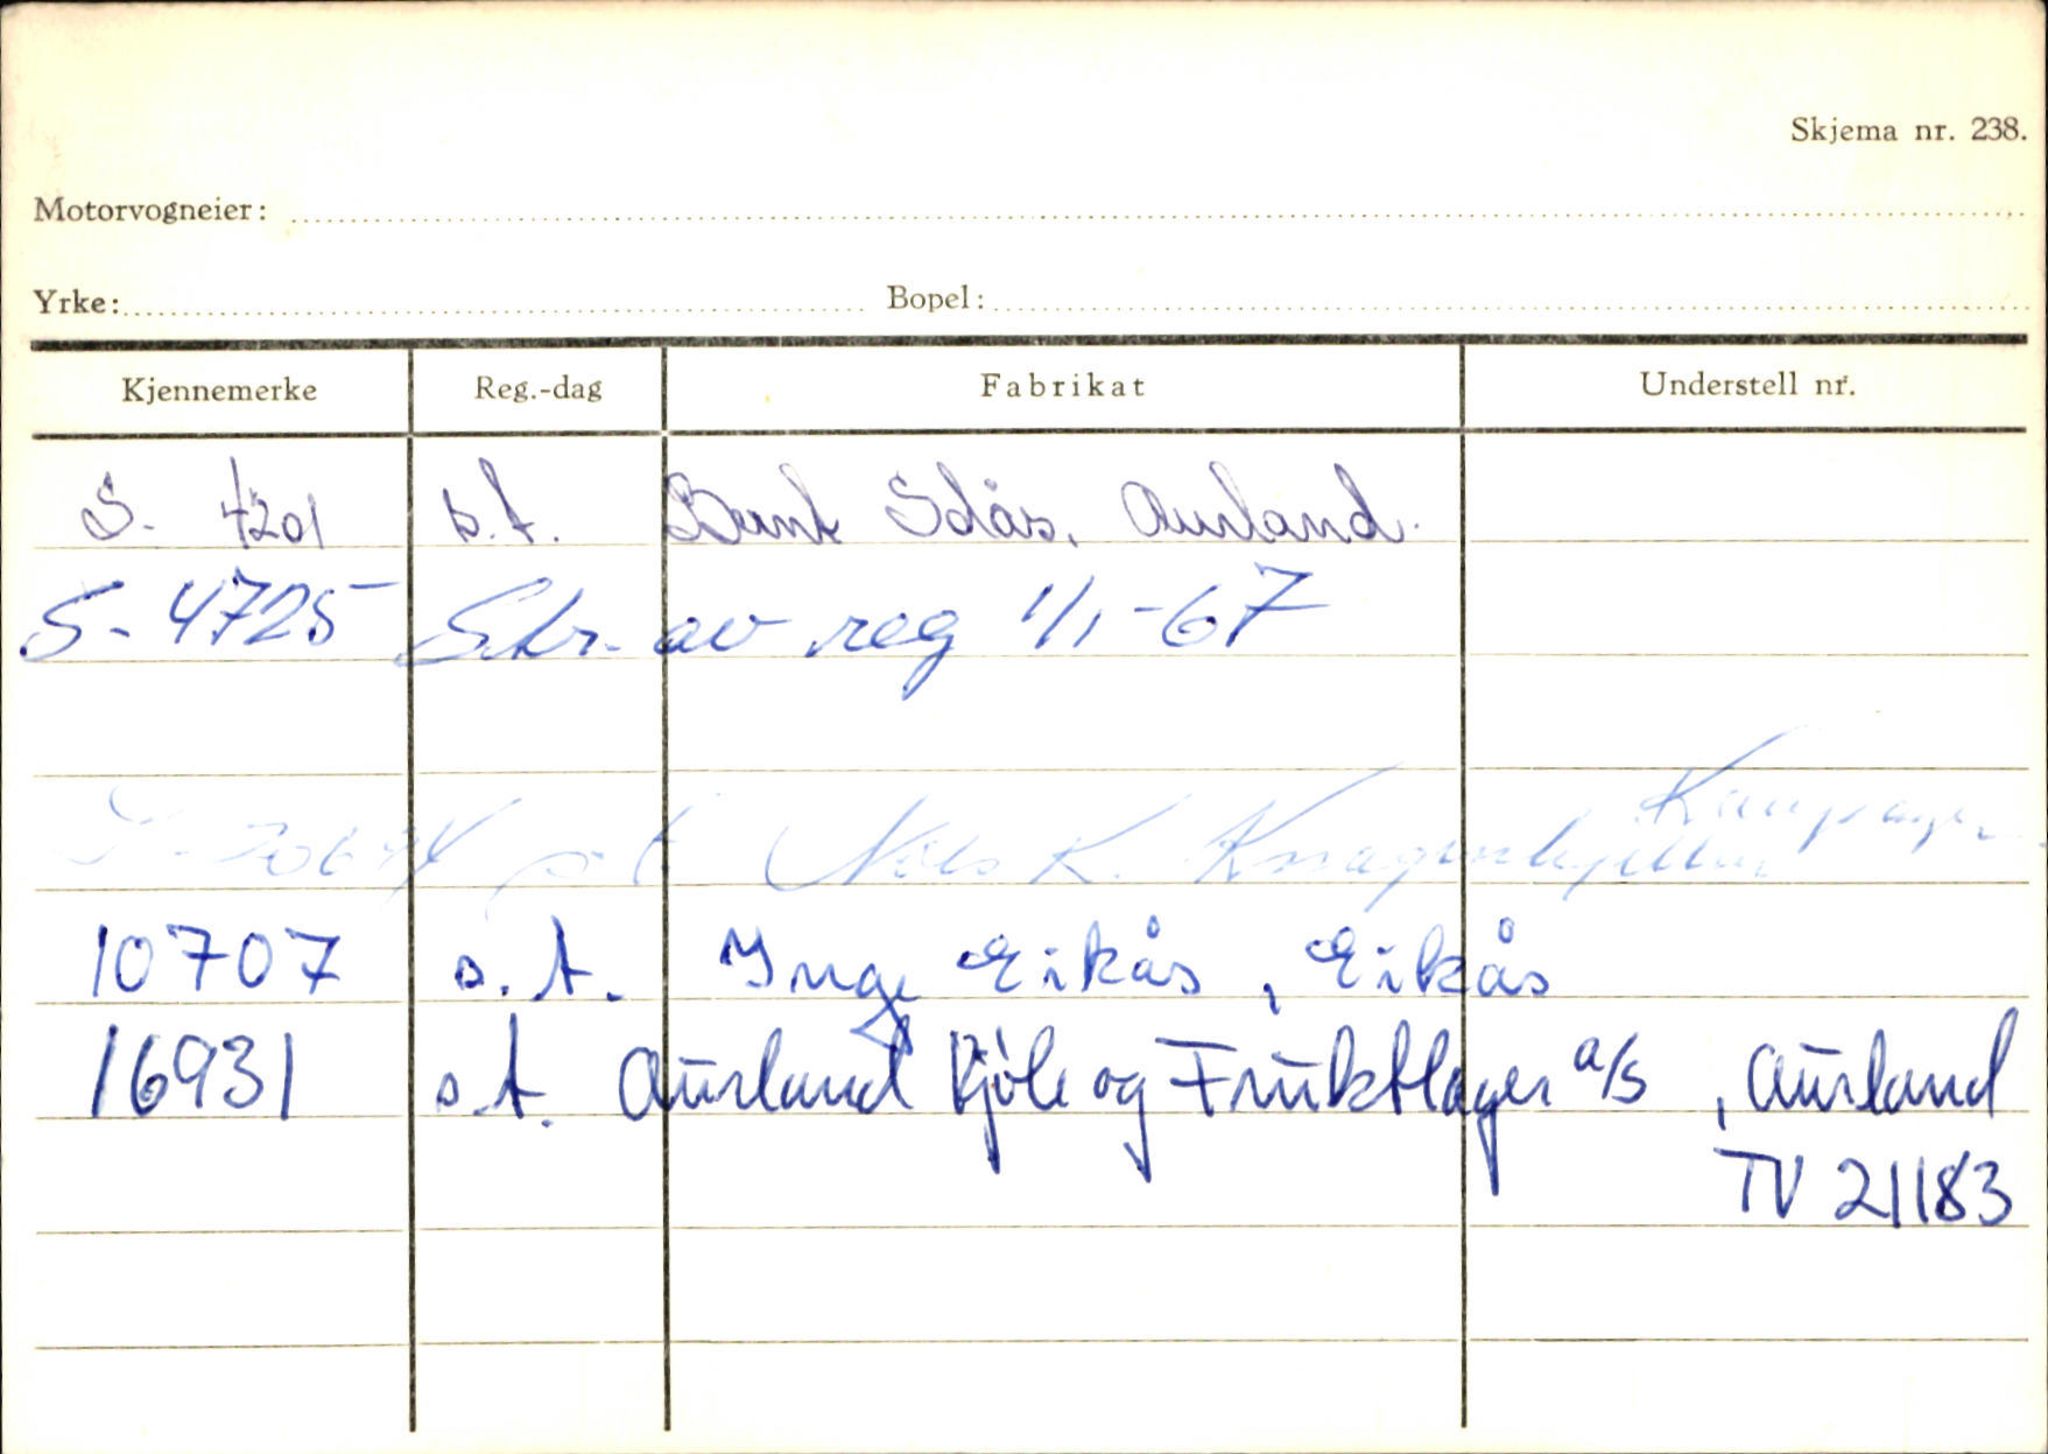 Skjema nr. 238.
Motorvogneier:
Yrke: Bopel:
Kjennemerke Reg.-dag Fabrikat Understell nr.
S. 4201 s.t. Aurland.
S. 4725 Str. av reg 1/1-67
K.
10707 s.t. Inge Eikås, Eikås
16931 s.t. Aurland Kjøle og Fruktlager a/s, Aurland
TV 21183